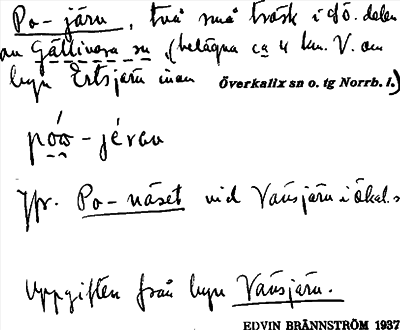 Po-järv, två små träsk i sö. delen
av Gällivara sn (belägna ca 4 km. V. om
byn Ertsjärv inom Överkalix sn o. tg Norrb. l.)
póω-jérav
Jfr. Po-näset vid Vänsjärv i Ökal. s
Uppgiften från byn Vänsjärv.
EDVIN BRÄNNSTRÖM 1937